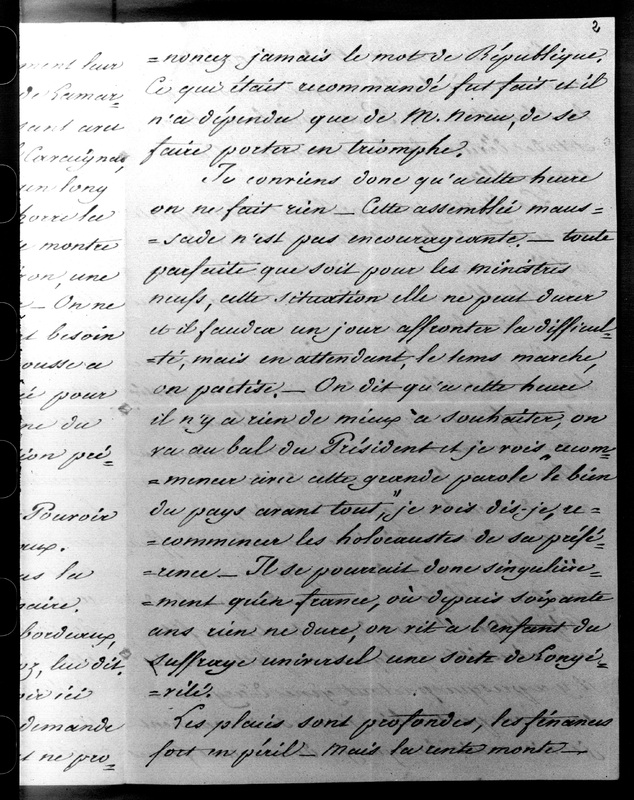 2
ment leur
de Lamar=
sant avec
Cavaignac,
un long
horre la
e montre
iron, une
e _ On ne
et besoin
ousse a
é pour
ne du
ion pré=
Pouvoir
aux.
as la
naire.
bordeaux,
oz, lui dit.
oir ici
demande
et ne pro=
=noncez jamais le mot de République.
Ce qui était recommandé fut fait et il
n'a dépendu que de M. de se
faire porter en triomphe.
Je conviens donc qu'à cette heure
on ne fait rien _ Cette assemblée maus=
=sade n'est pas encourageante. _ toute
parfaite que soit pour les ministres
neufs, cette situation elle ne peut durer
et il faudra un jour affronter la difficul=
=té, mais en attendant, le tems marche,
on pactise. _ On dit qu'à cette heure
il n'y a rien de mieux à souhaiter, on
va au bal du Président et je vois, "recom=
=mencer avec cette grande parole le bien
du pays avant tout", je vois dis-je, re=
=commencer les holocaustes de sa préfé=
=rence _ Il se pourrait donc singulière=
=ment qu'en france, où depuis soixante
ans rien ne dure, on vit à l'enfant du
suffrage universel une sorte de Longé=
=vité.
Les plaies sont profondes, les finances
fort en péril _ Mais la rente monte _